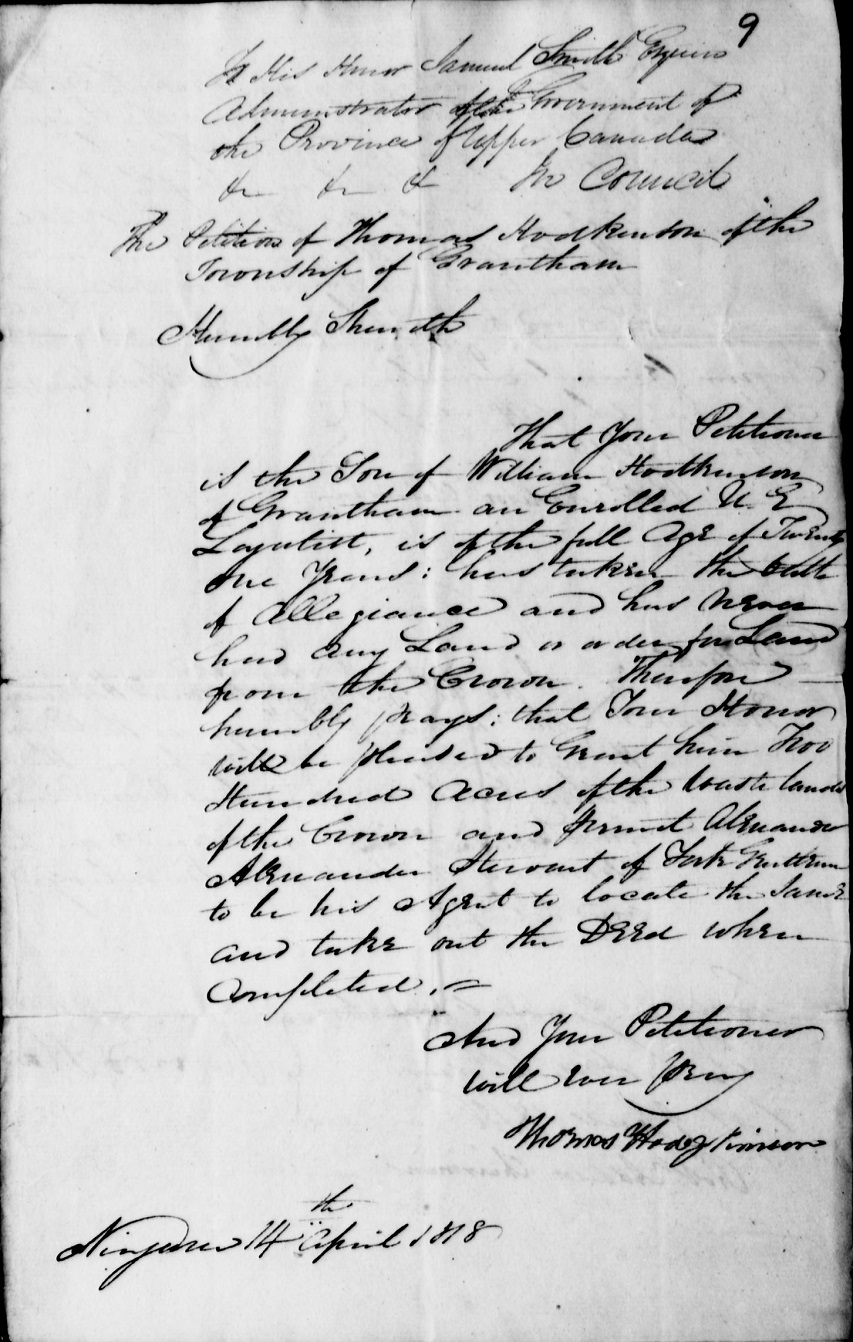 9
To His Honor Samuel Smith Esquire
Administrator of the Government of
the Province of Upper Canada
&c &c &c In Council
The Petition of Thomas Hodkinson of the
Township of Grantham
Humbly Sheweth
That Your Petitioner
is the Son of William Hodkinson
of Grantham an Enrolled U. E
Loyalist, is of the full Age of Twenty
one Years: has taken the Oath
of Allegiance and has never
had any Land or order for Land
from the Crown. Therefore
humbly prays: that Your Honor
will be pleased to Grant him Two
Hundred Acres of the Waste lands
of the Crown and permit Alexander
Alexander Stewart of York Gentleman
to be his Agent to locate the Same
and take out the DEEd when
Completed.
And Your Petitioner
will ever pray
Thomas Hodgkinson
Niagara 14th April 1818